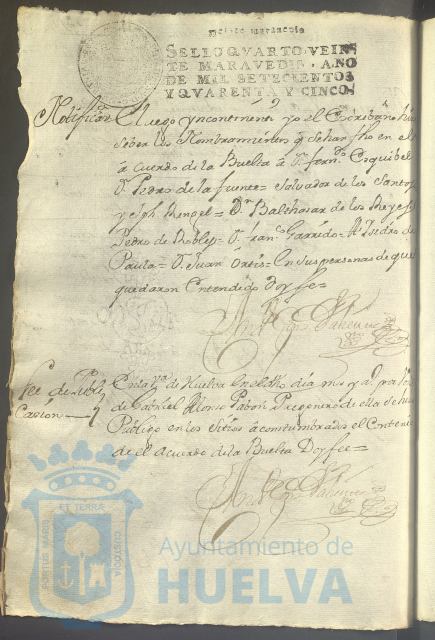 veinte maravedis
SELLO QVARTO, VEIN
TE MARAVEDIS, AÑO
DE MIL SETECIENTOS
Y QVARENTA Y CINCO.
Notificaⁿ Luego yncontinenti yo el Escribano hize
saber los Nombramientos q̃ se han fho en el
acuerdo de la Buelta â Dⁿ. Fernᵈᵒ Esquibel
Dⁿ. Pedro de la fuente= Salvador de los Santos
y Jph. Rengel= Dⁿ Balthasar de los Reyes=
Pedro de Robles= Dⁿ. Franᶜᵒ Garrido= Isidro de
Paula= Dⁿ. Juan Ortis= En sus personas de que
quedaron Entendidos Doy fee=
Fee de Publi
cacion
En la vᵃ de Huelva en el dho dia mes y a° por voz
de Gabriel Alonso Pabon Pregonero de ella se hizo
Publico en los sitios acostumbrados el Conteni
de el Acuerdo de la Buelta Doy fee=
PORTUS MARIS ET TERRÆ CUSTODIA
Ayuntamiento de
HUELVA